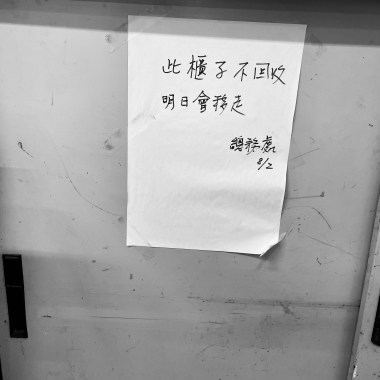 此櫃子不回收
明日會移走
總務處
8/2